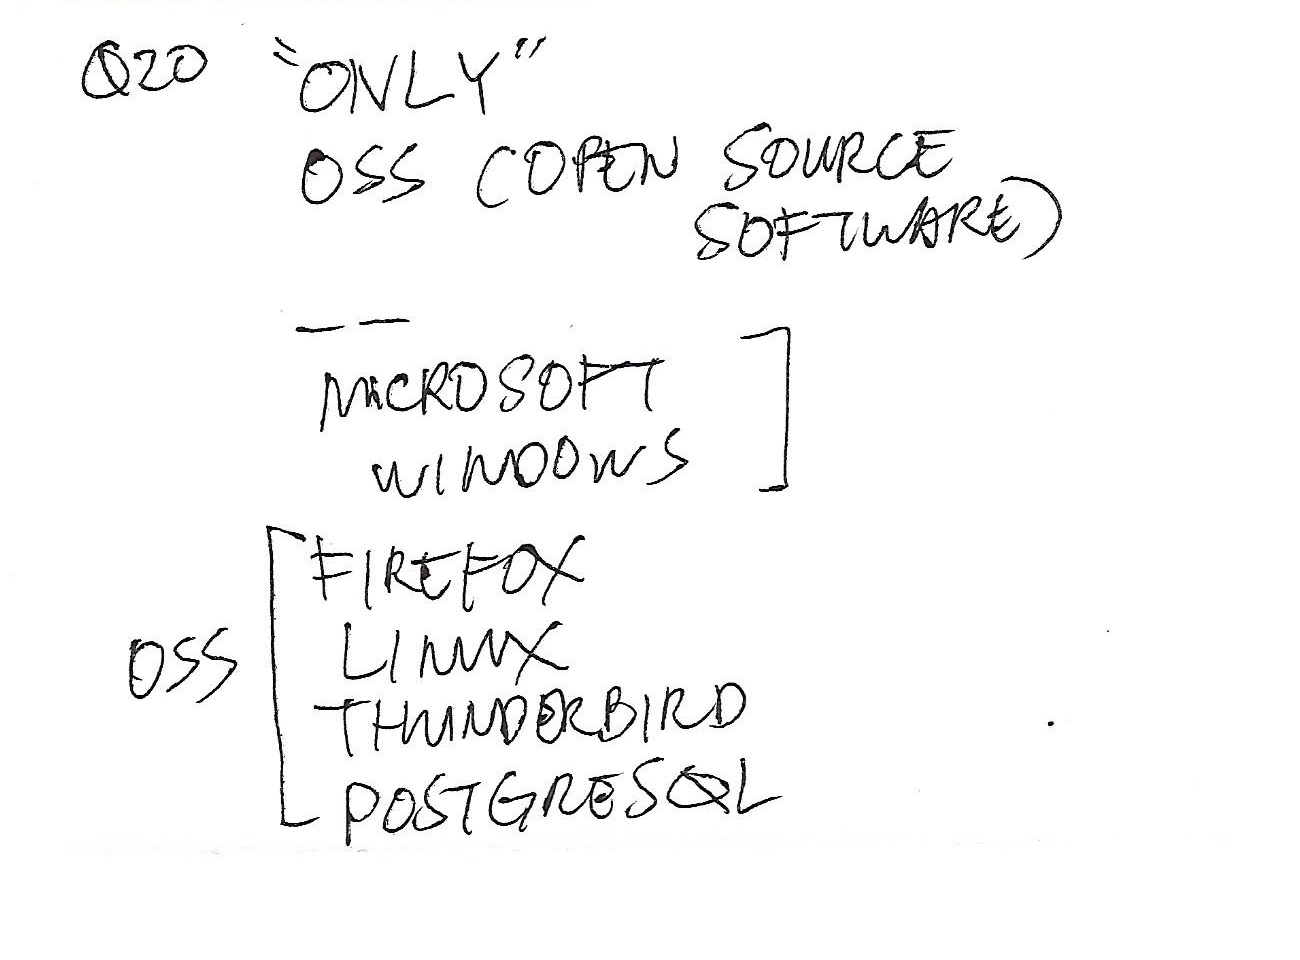 Q20 "ONLY"
OSS (OPEN SOURCE
SOFTWARE)
MICROSOFT
WINDOWS
FIREFOX
OSS
LINUX
THUNDERBIRD
POSTGRESQL